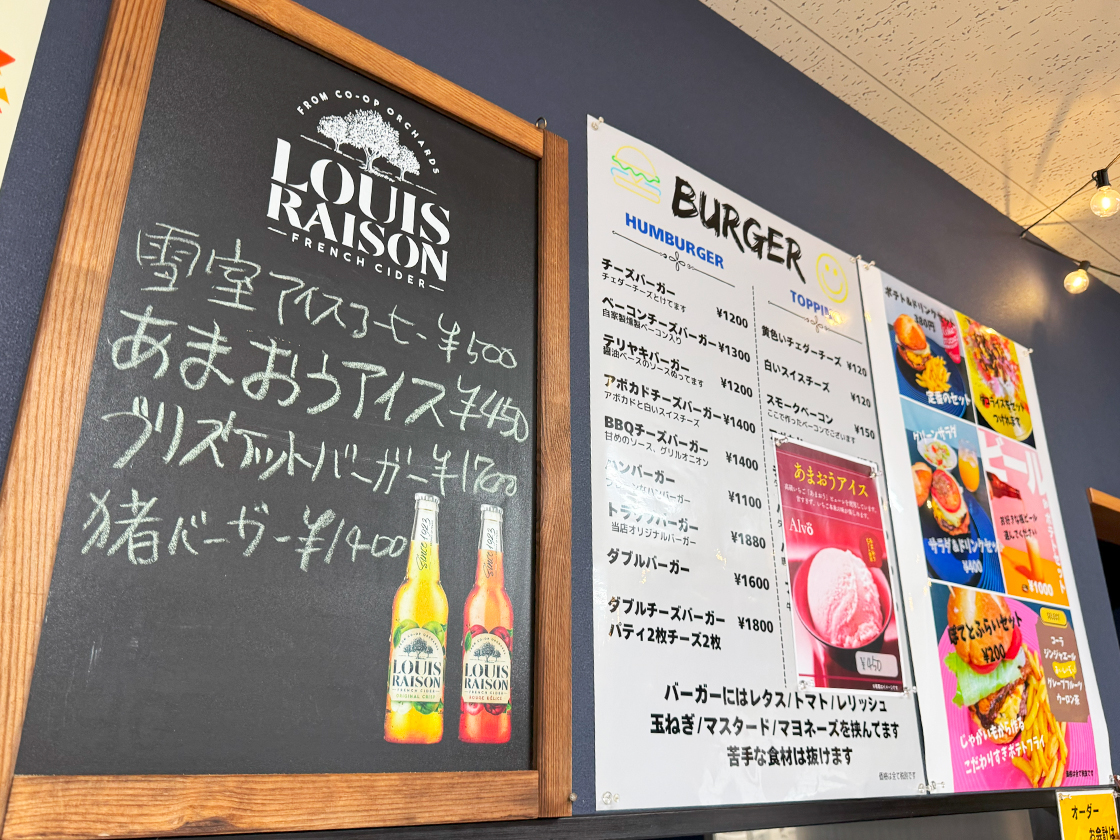 FROM CO-OP ORCHARDS
LOUIS
RAISON
FRENCH CIDER
雪室アイスコーヒー ¥500
あまおうアイス ¥450
ブリスケットバーガー ¥1700
猪バーガー ¥1400
Since 1923
LOUIS
RAISON
FRENCH CIDER
ORIGINAL CRISP
Since 1923
LOUIS
RAISON
FRENCH CIDER
ROUGE DÉLICE
BURGER
HUMBURGER
チーズバーガー ¥1200
チェダーチーズとけてます
ベーコンチーズバーガー ¥1300
自家製燻製ベーコン入り
テリヤキバーガー ¥1200
醤油ベースのソースぬってます
アボカドチーズバーガー ¥1400
アボカドと白いスイスチーズ
BBQチーズバーガー ¥1400
甘めのソース、グリルオニオン
ハンバーガー ¥1100
トラックバーガー ¥1880
当店オリジナルバーガー
ダブルバーガー ¥1600
ダブルチーズバーガー ¥1800
パティ2枚チーズ2枚
黄色いチェダーチーズ ¥120
白いスイスチーズ ¥120
スモークベーコン ¥150
ここで作ったベーコンでございます
あまおうアイス
Alvō
¥450
バーガーにはレタス/トマト/レリッシュ
玉ねぎ/マスタード/マヨネーズを挟んでます
苦手な食材は抜けます
価格は全て税別です
ポテト&ドリンク
380円
定番のセット
グリーンサラダ
サラダ&ドリンクセット
¥400
ビール
お好きな瓶ビール
選んでください
¥1000
ぽてとふらいセット
¥200
じゃがいもから作る
こだわりすぎポテトフライ
SELECT
コーラ
ジンジャエール
オレンジ
グレープフルーツ
ウーロン茶
価格は全て税別です
オーダー
お会計は